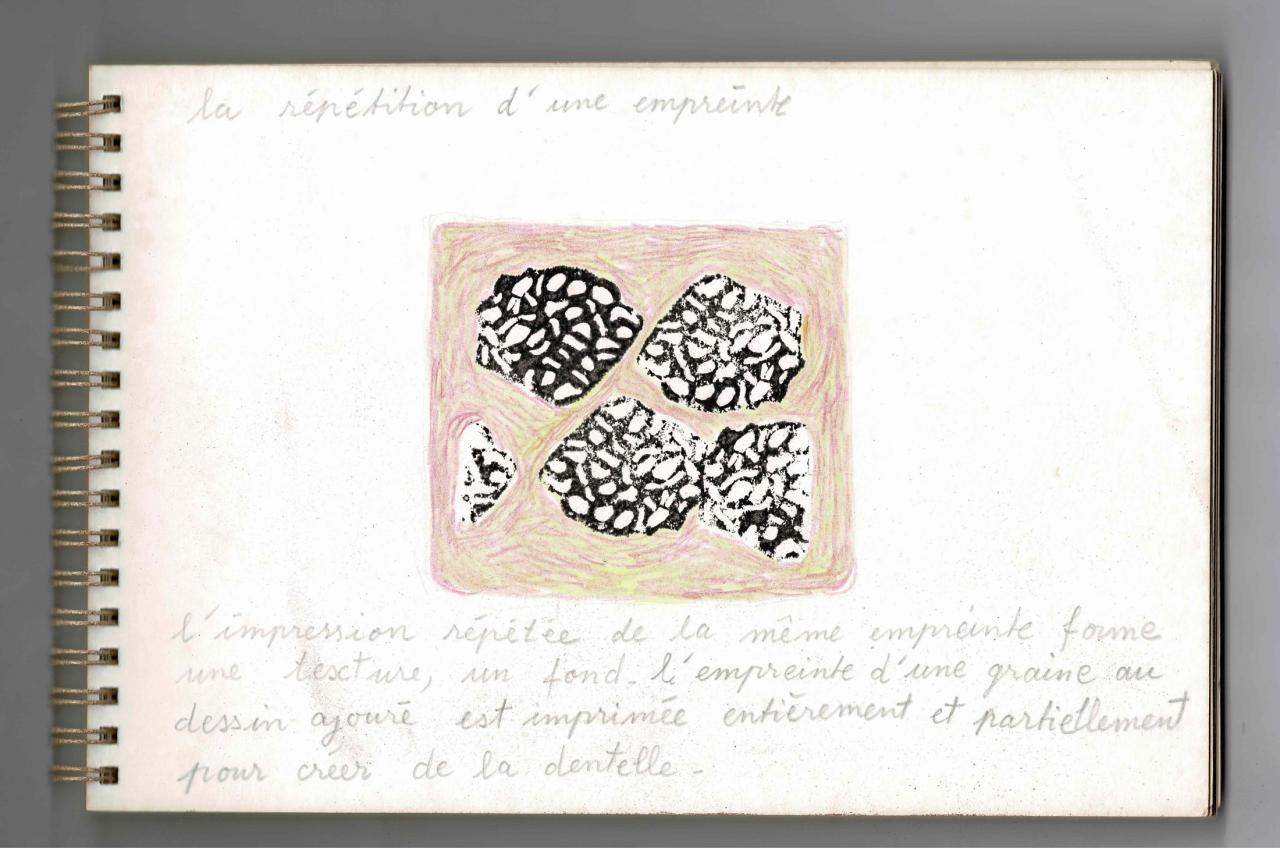 la répétition d'une empreinte
l'impression répétée de la même empreinte forme
une texture, un fond - l'empreinte d'une graine au
dessin ajouré est imprimée entièrement et partiellement
pour créer de la dentelle -